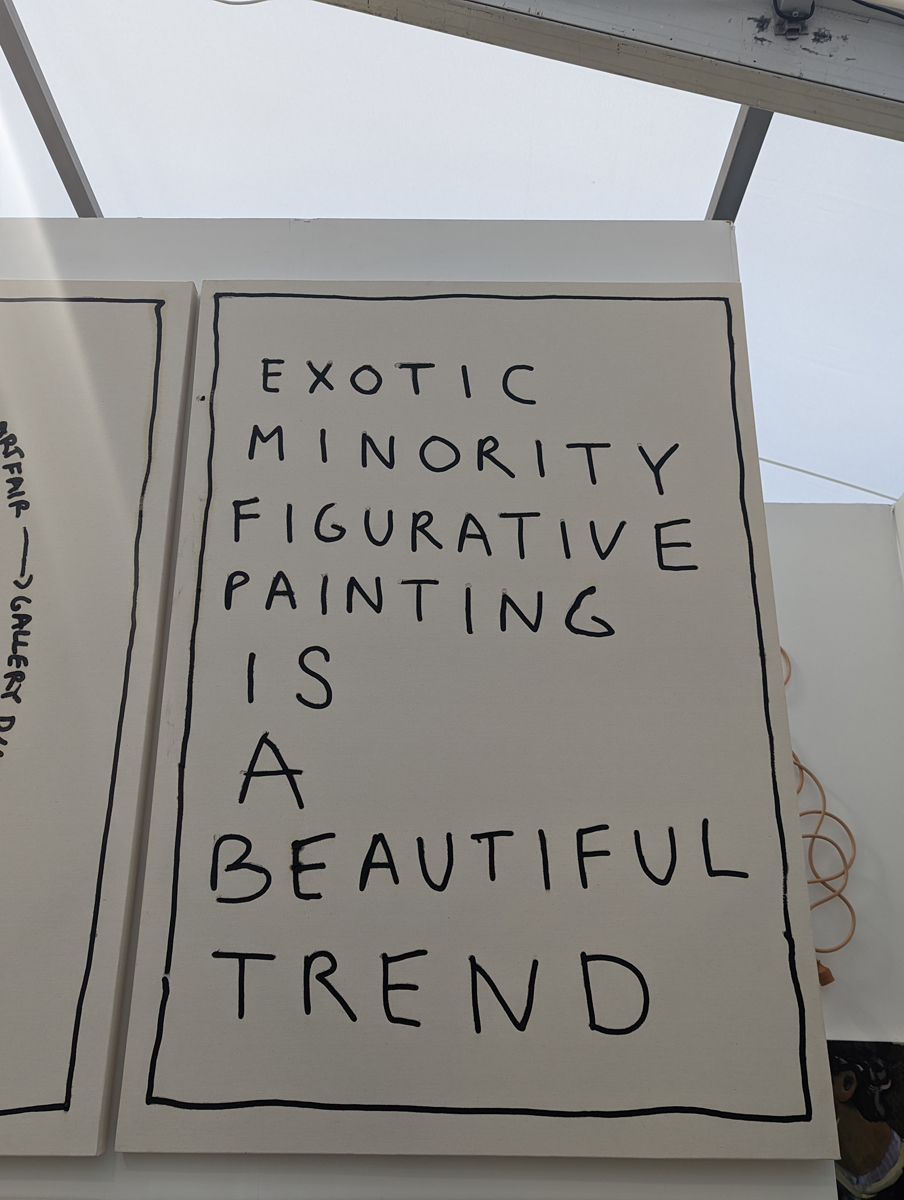 EXOTIC
MINORITY
FIGURATIVE
PAINTING
IS
A
BEAUTIFUL
TREND
FAIR —> GALLERY